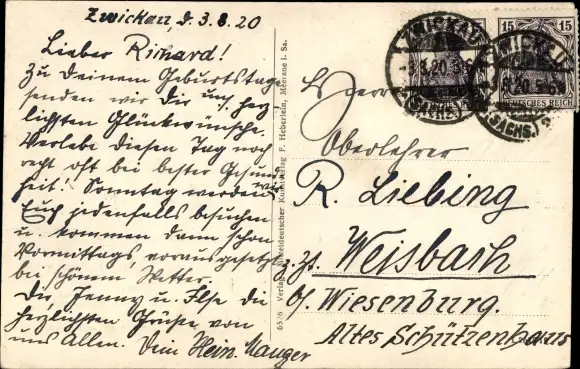 Zwickau, d. 3.8.20
Lieber Richard!
Zu Deinem Geburtstage
senden wir Dir uns. herz-
lichsten Glückwünsche.
Verlebe diesen Tag noch
recht oft bei bester Gesund-
heit! Sonntag werden wir
Euch jedenfalls besuchen
u. kommen dann schon
Vormittags, vorausgesetzt
bei schönem Wetter.
Dir, Jenny u. Ilse die
herzlichsten Grüße von
uns Allen. Dein Hein. Mauger
6596 Verlag Mitteldeutscher Kunstverlag F. Heberlein, Meerane i. Sa.
ZWICKAU
3.8.20
(SACHS.)
15 15
DEUTSCHES REICH
ZWICKAU
8.20
(SACHS.)
Herrn
Oberlehrer
R. Liebing
z. Zt. Weisbach
b/ Wiesenburg.
Altes Schützenhaus